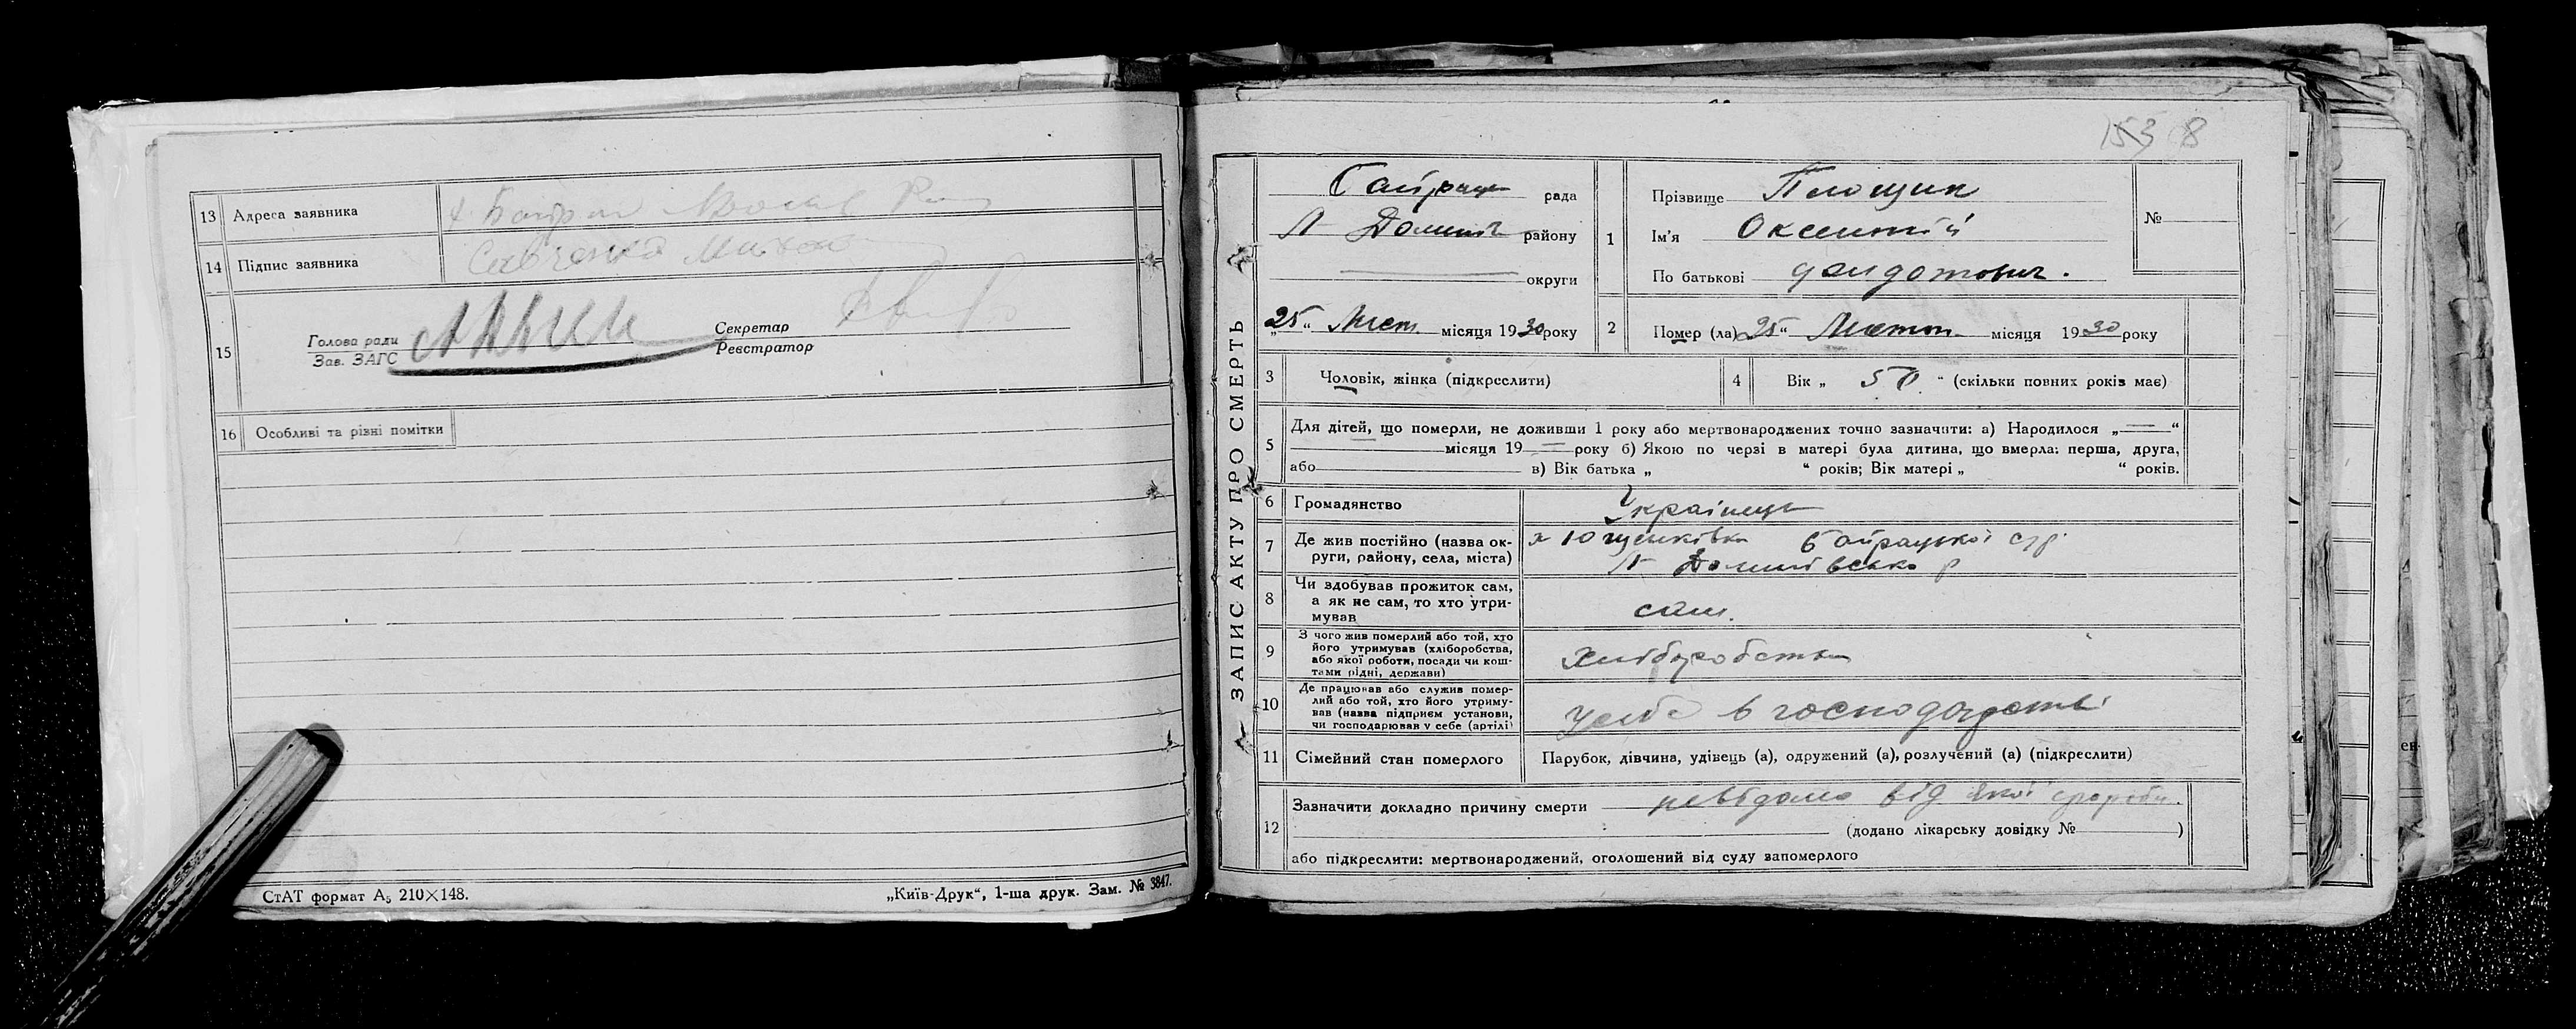 13 Адреса заявника
14 Підпис заявника
Савченко
15
Голова ради
Зав. ЗАГС
Секретар
Реєстратор
16 Особливі та різні помітки
СтАТ формат А₅ 210×148.
„Київ-Друк“, 1-ша друк. Зам. № 3847.
153 8
ЗАПИС АКТУ ПРО СМЕРТЬ
рада
району
округи
„25“ Лист місяця 1930 року
1
Прізвище Площик
Ім'я Оксентій
По батькові
№
2 Помер (ла) 25“ Листоп. місяця 1930 року
3 Чоловік, жінка (підкреслити)
4 Вік „ 50 “ (скільки повних років має)
5 Для дітей, що померли, не доживши 1 року або мертвонароджених точно зазначити: а) Народилося „ “
місяця 19 року б) Якою по черзі в матері була дитина, що вмерла: перша, друга,
або в) Вік батька „ “ років; Вік матері „ “ років.
6 Громадянство Українець
7 Де жив постійно (назва округи, району, села, міста) Байрацької с/р
8 Чи здобував прожиток сам,
а як не сам, то хто утри-
мував
сам.
9 З чого жив померлий або той, хто
його утримував (хліборобства,
або якої роботи, посади чи кош-
тами рідні, держави)
Хліборобства
10 Де працював або служив помер-
лий або той, хто його утриму-
вав (назва підприєм установи,
чи господарював у себе (артілі)
у себе в господарстві
11 Сімейний стан померлого Парубок, дівчина, удівець (а), одружений (а), розлучений (а) (підкреслити)
12 Зазначити докладно причину смерти невідомо від якої хвороби.
(додано лікарську довідку № )
або підкреслити: мертвонароджений, оголошений від суду запомерлого